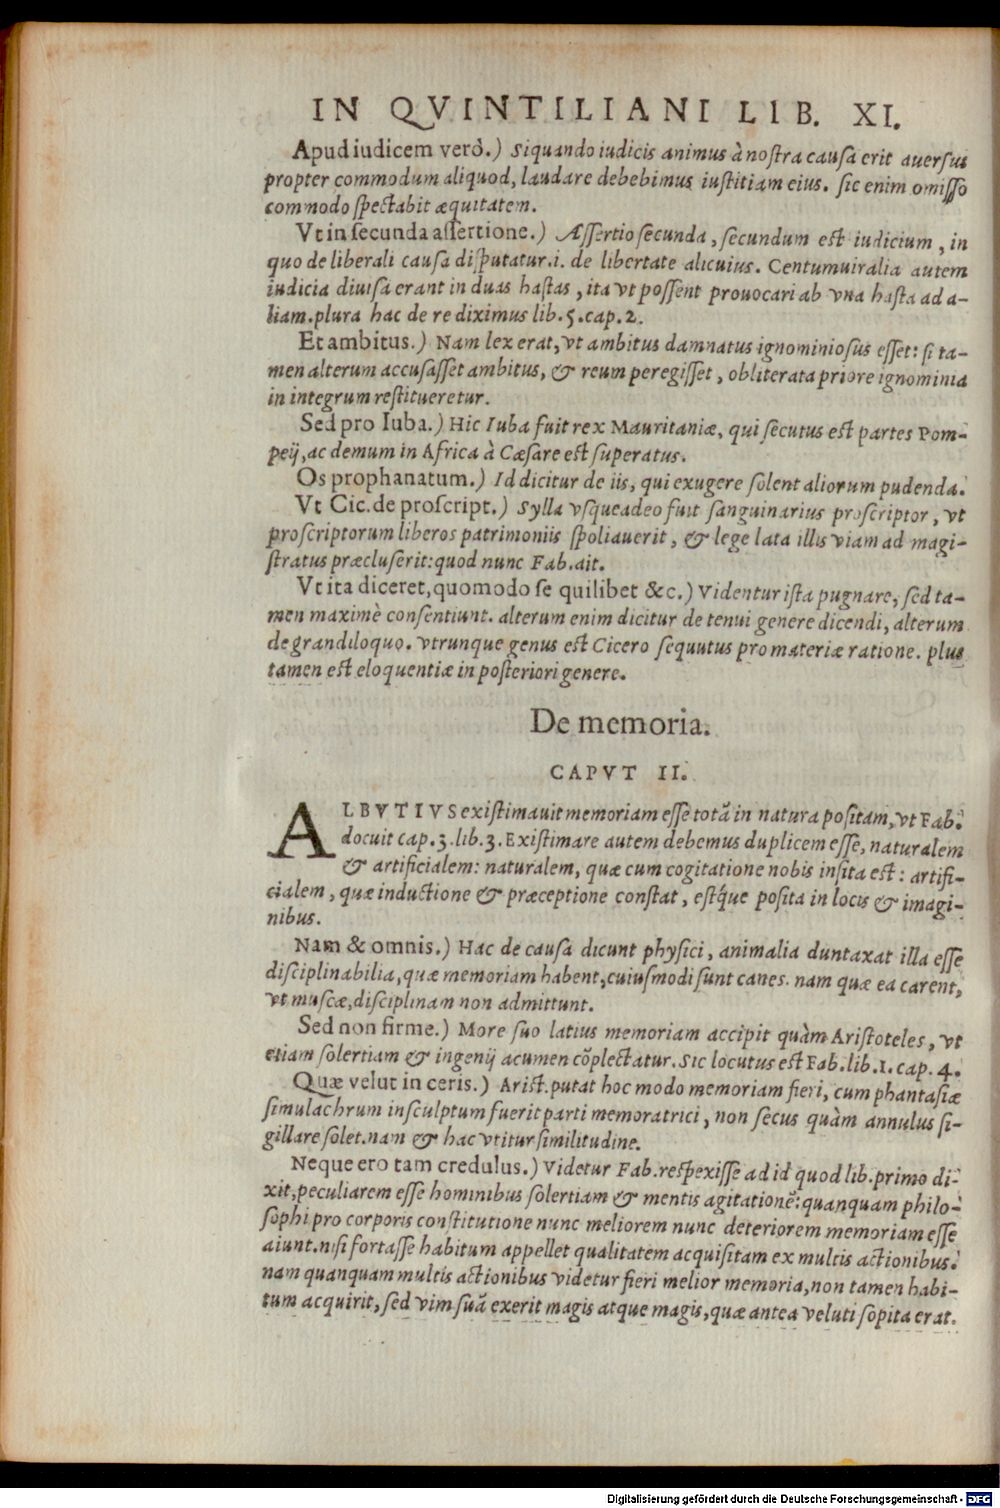 IN QVINTILIANI LIB. XI.
Apud iudicem verò.) Siquando iudicis animus à nostra causa erit auersus
propter commodum aliquod, laudare debebimus iustitiam eius. sic enim omisso
commodo spectabit æquitatem.
Vt in secunda assertione.) Assertio secunda, secundum est iudicium, in
quo de liberali causa disputatur.i. de libertate alicuius. Centumuiralia autem
iudicia diuisa erant in duas hastas, ita vt possent prouocari ab vna hasta ad a-
liam.plura hac de re diximus lib.5.cap.2.
Et ambitus.) Nam lex erat, vt ambitus damnatus ignominiosus esset: si ta-
men alterum accusasset ambitus, & reum peregisset, obliterata priore ignominia
in integrum restitueretur.
Sed pro Iuba.) Hic Iuba fuit rex Mauritaniæ, qui secutus est partes Pom-
peij, ac demum in Africa à Cæsare est superatus.
Os prophanatum.) Id dicitur de iis, qui exugere solent aliorum pudenda.
Vt Cic.de proscript.) Sylla vsqueadeo fuit sanguinarius proscriptor, vt
proscriptorum liberos patrimoniis spoliauerit, & lege lata illis viam ad magi-
stratus præcluserit: quod nunc Fab.ait.
Vt ita diceret, quomodo se quilibet &c.) Videntur ista pugnare, sed ta-
men maximè consentiunt. alterum enim dicitur de tenui genere dicendi, alterum
de grandiloquo. vtrunque genus est Cicero sequutus pro materiæ ratione. plus
tamen est eloquentiæ in posteriori genere.
De memoria.
CAPVT II.
ALBVTIVS existimauit memoriam esse totā in natura positam, vt Fab.
docuit cap.3.lib.3. Existimare autem debemus duplicem esse, naturalem
& artificialem: naturalem, quæ cum cogitatione nobis insita est: artifi-
cialem, quæ inductione & præceptione constat, estq́ue posita in locis & imagi-
nibus.
Nam & omnis.) Hac de causa dicunt physici, animalia duntaxat illa esse
disciplinabilia, quæ memoriam habent, cuiusmodi sunt canes. nam quæ ea carent,
vt muscæ, disciplinam non admittunt.
Sed non firme.) More suo latius memoriam accipit quàm Aristoteles, vt
etiam solertiam & ingenij acumen cōplectatur. Sic locutus est Fab.lib.1.cap.4.
Quæ velut in ceris.) Arist.putat hoc modo memoriam fieri, cum phantasiæ
simulachrum insculptum fuerit parti memoratrici, non secus quàm annulus si-
gillare solet.nam & hac vtitur similitudine.
Neque ero tam credulus.) Videtur Fab.respexisse ad id quod lib.primo di-
xit, peculiarem esse hominibus solertiam & mentis agitationē: quanquam philo-
sophi pro corporis constitutione nunc meliorem nunc deteriorem memoriam esse
aiunt.nisi fortasse habitum appellet qualitatem acquisitam ex multis actionibus.
nam quanquam multis actionibus videtur fieri melior memoria, non tamen habi-
tum acquirit, sed vim suā exerit magis atque magis, quæ antea veluti sopita erat.
Digitalisierung gefördert durch die Deutsche Forschungsgemeinschaft - DFG